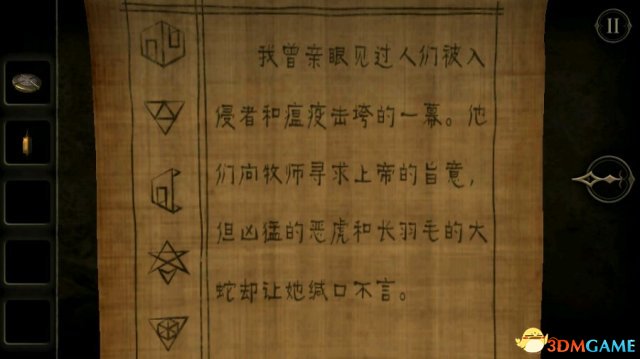 我曾亲眼见过人们被入
侵者和瘟疫击垮的一幕。他
们向牧师寻求上帝的旨意，
但凶猛的恶虎和长羽毛的大
蛇却让她缄口不言。
3DMGAME